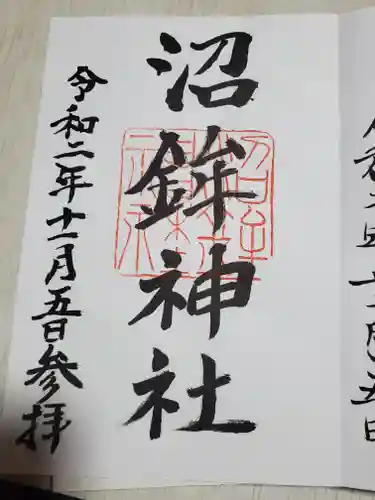 沼鉾神社
令和二年十一月五日参拝